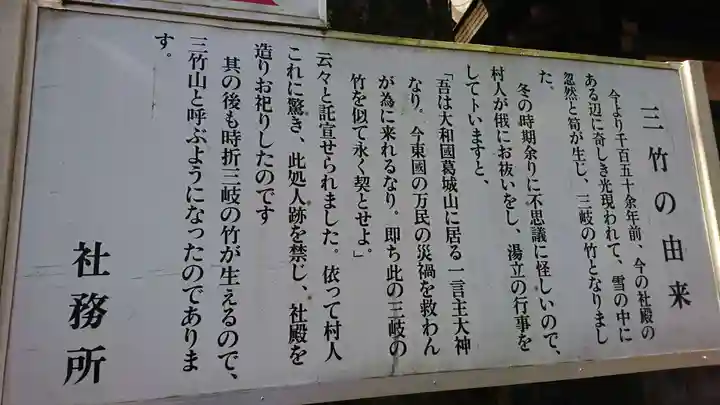 三竹の由来
今より千百五十余年前、今の社殿の
ある辺に奇しき光現われて、雪の中に
忽然と筍が生じ、三岐の竹となりまし
た。
冬の時期余りに不思議に怪しいので、
村人が俄にお祓いをし、湯立の行事を
して卜いますと、
「吾は大和國葛城山に居る一言主大神
なり。今東國の万民の災禍を救わん
が為に来れるなり。即ち此の三岐の
竹を似て永く契とせよ。」
云々と託宣せられました。依って村人
これに驚き、此処人跡を禁じ、社殿を
造りお祀りしたのです
其の後も時折三岐の竹が生えるので、
三竹山と呼ぶようになったのでありま
す。
社務所